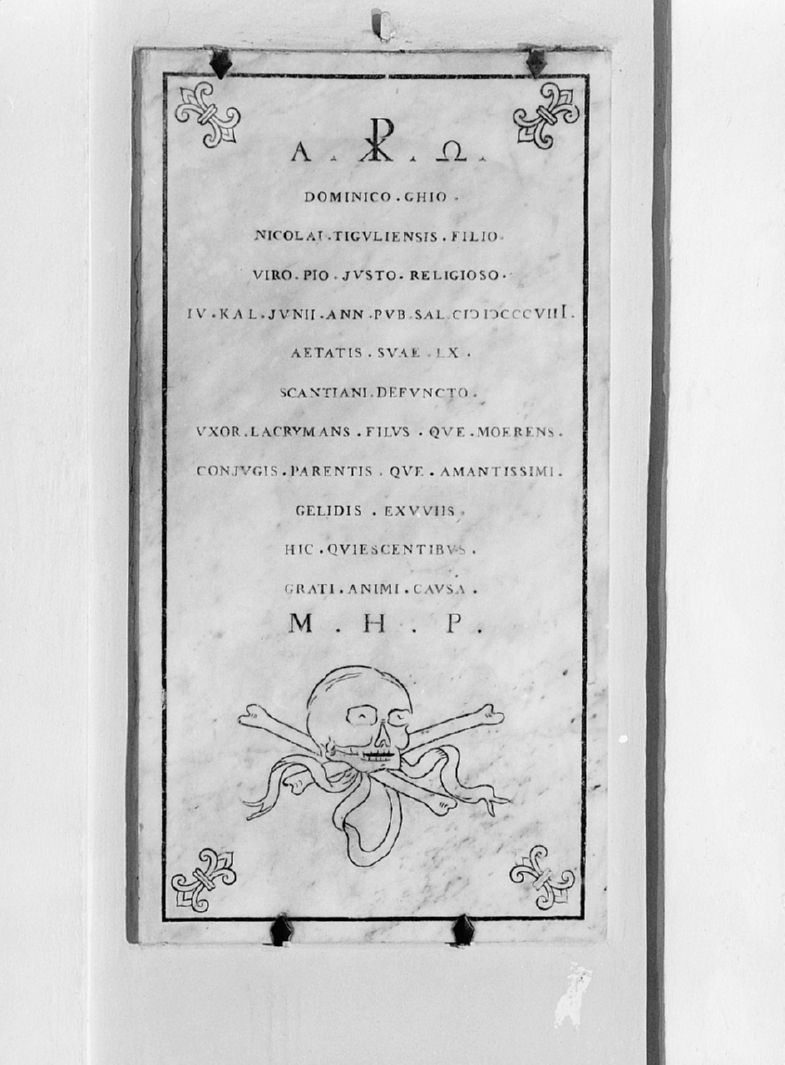 Α . ☧ . Ω .
DOMINICO . GHIO .
NICOLAI . TIGVLIENSIS . FILIO .
VIRO . PIO . JVSTO . RELIGIOSO .
IV . KAL . JVNII . ANN . PVB . SAL . CIↃ IↃCCCVIII .
AETATIS . SVAE . LX .
SCANTIANI . DEFVNCTO .
VXOR . LACRYMANS . FILVS . QVE . MOERENS .
CONJVGIS . PARENTIS . QVE . AMANTISSIMI .
GELIDIS . EXVVIIS .
HIC . QVIESCENTIBVS .
GRATI . ANIMI . CAVSA .
M . H . P .